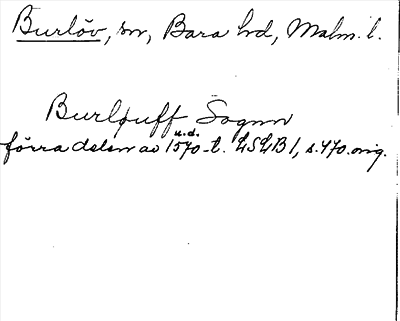 Burlöv, sn, Bara hd, Malm. l.
Burlpuff Sognn
u.d.
förra delen av 1570-t. LSLB 1, s. 470. orig.